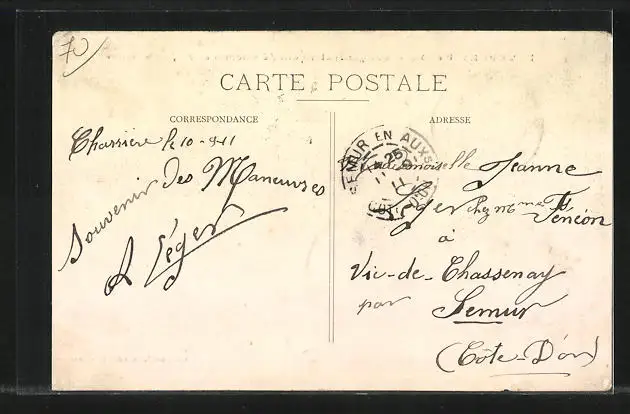 70
CARTE POSTALE
CORRESPONDANCE
Charrière le 10-9-11
Souvenir des Maneuvres
A Léger
ADRESSE
SEMUR EN AUXois
25
11
CÔTE D'OR
Mademoiselle Jeanne
Léger chez Mme Fénéon
à
Vic-de-Chassenay
par Semur
(Côte-D'or)